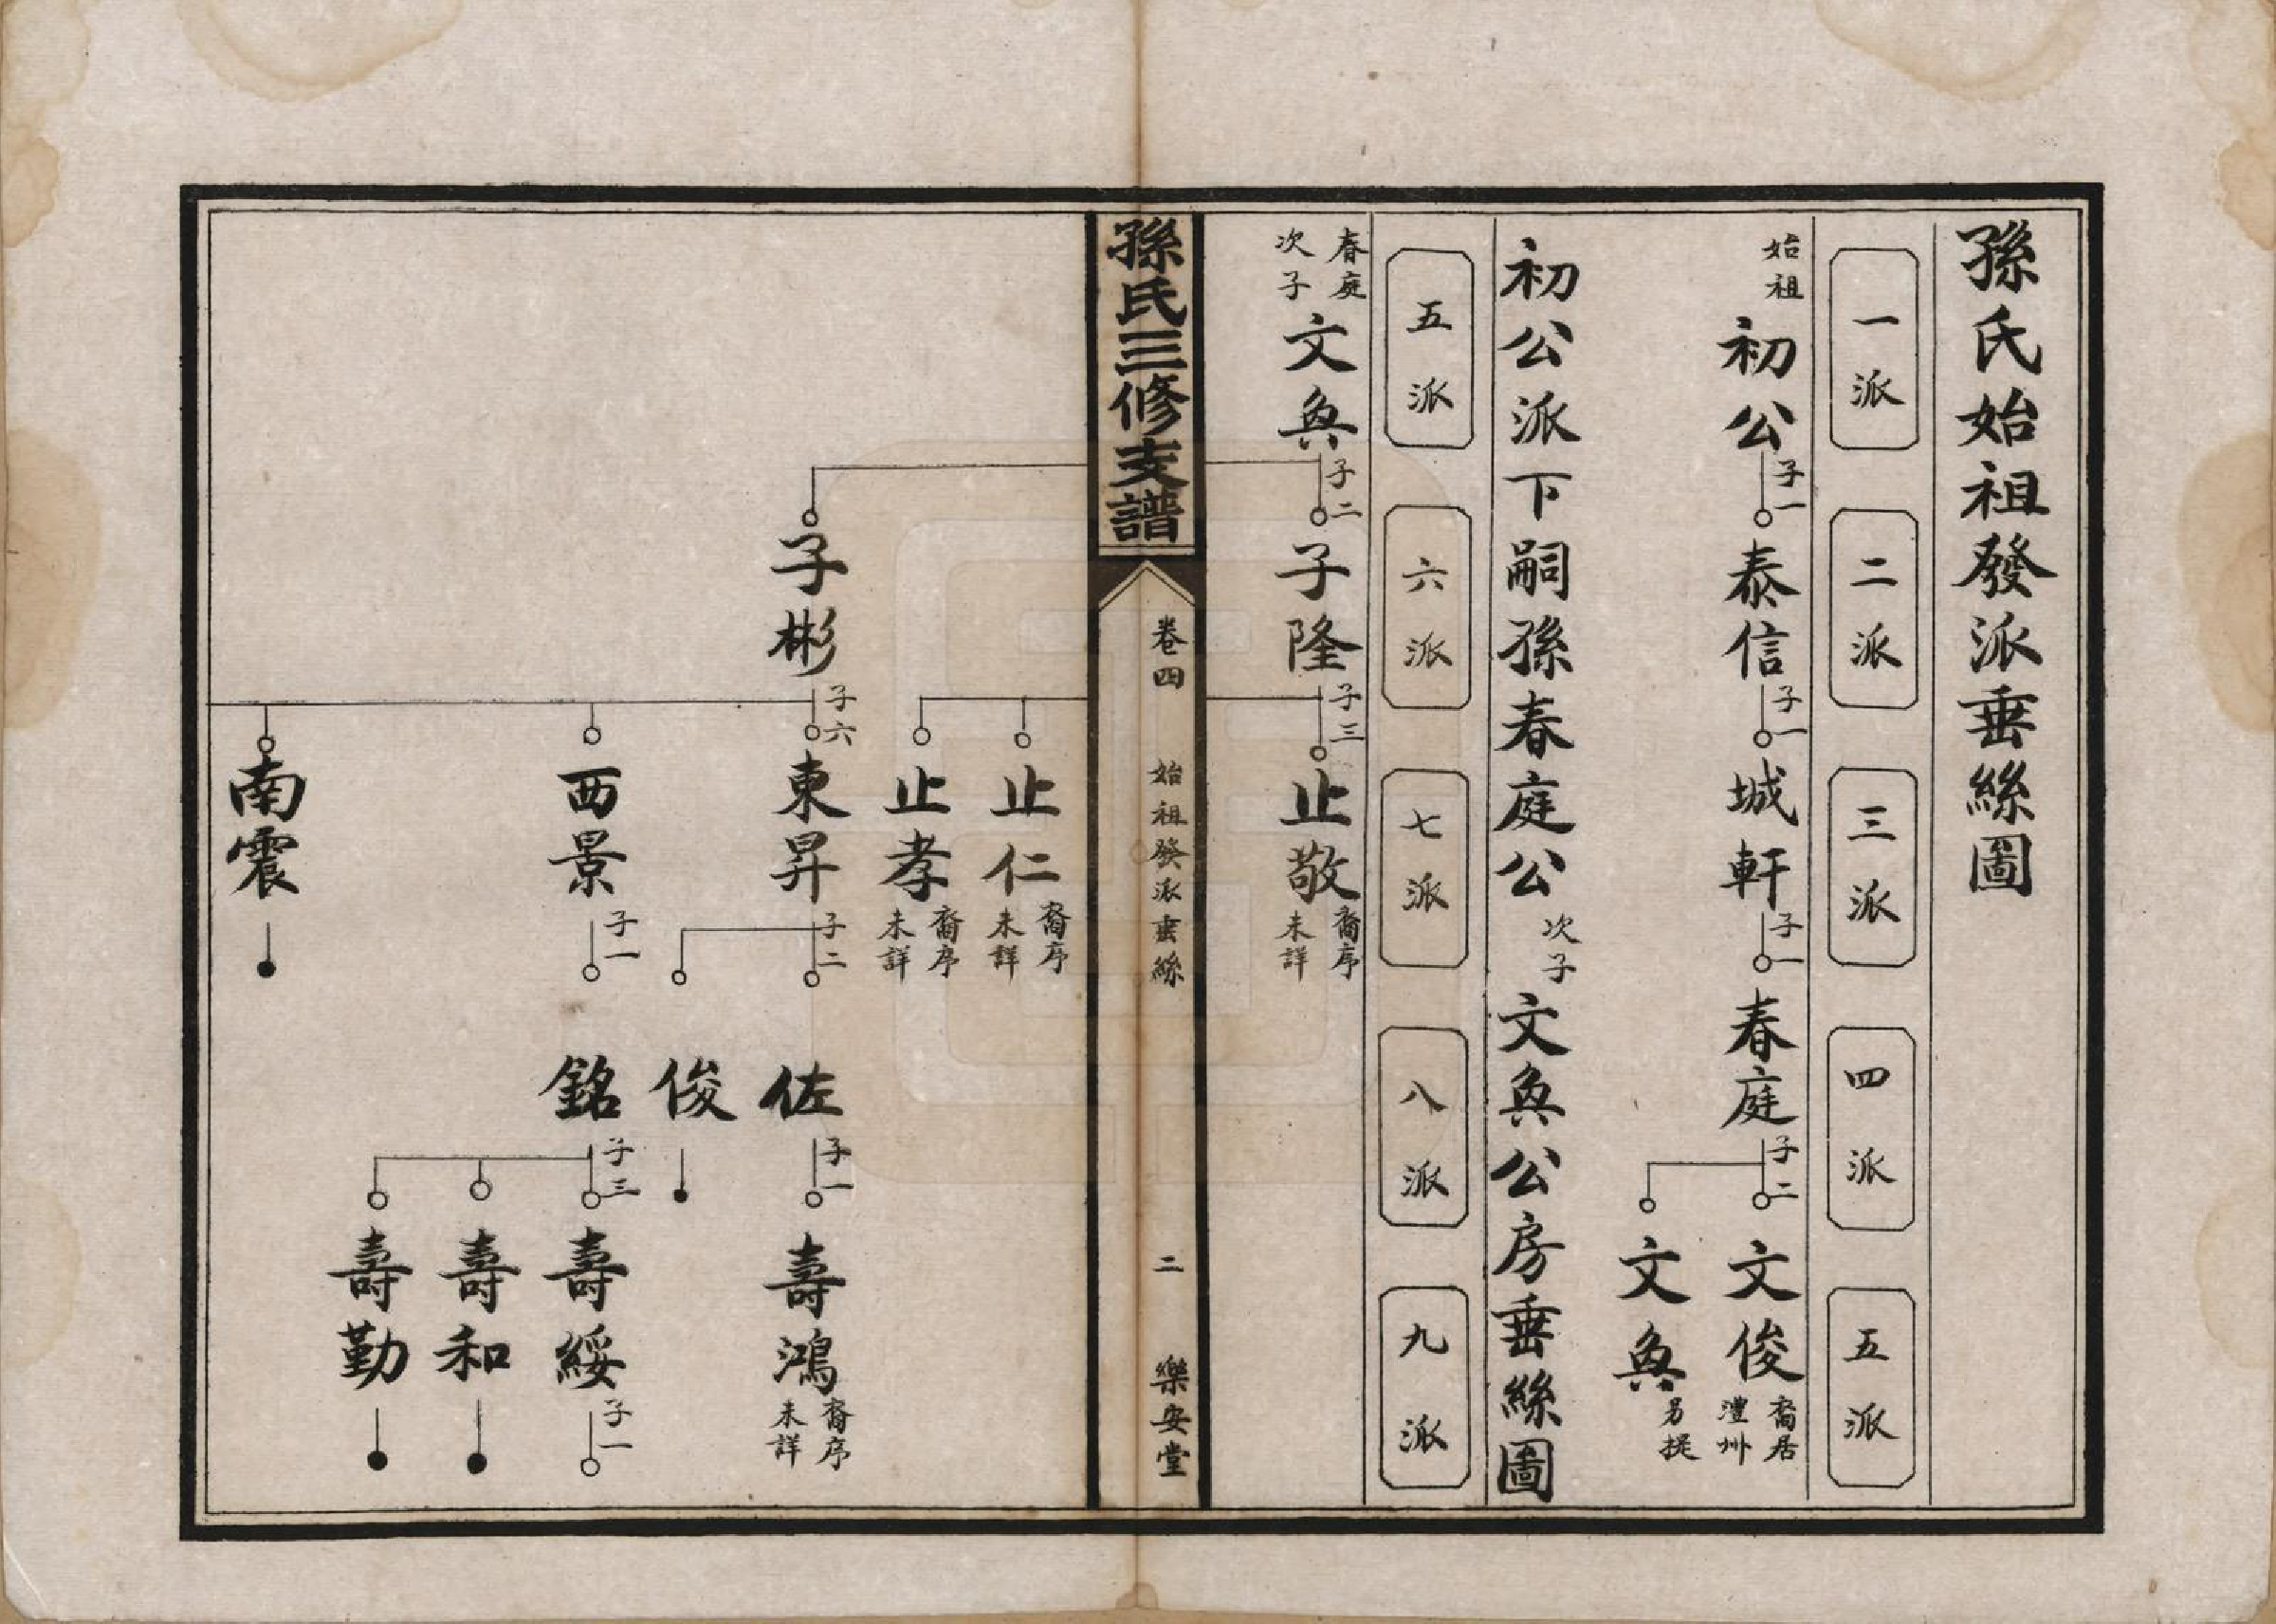 孫氏始祖發派垂絲圖
一派
二派
三派
四派
五派
始祖
初公
子一
泰信
子一
城軒
子一
春庭
子二
文俊
裔居
澧州
文奐
另提
初公派下嗣孫春庭公次子文奐公房垂絲圖
五派
六派
七派
八派
九派
春庭
次子
文奐
子二
子隆
子三
止敬
裔序
未詳
孫氏三修支譜
卷四
始祖發派垂絲
二
樂安堂
止仁
裔序
未詳
止孝
裔序
未詳
子彬
子六
東昇
子二
佐
子一
壽鴻
裔序
未詳
俊
西景
子一
銘
子三
壽綏
子一
壽和
壽勤
南震